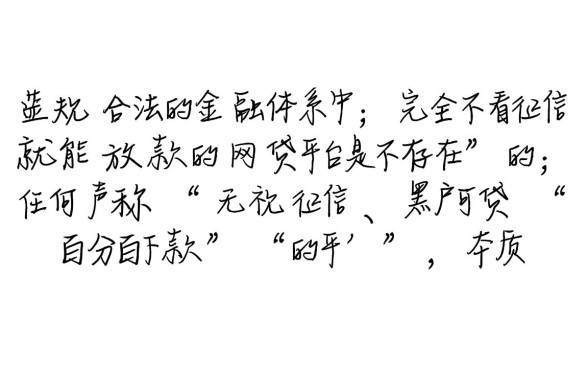 蓝规 合法的金融体系中； 完全不看征信
就能 放款的网贷平台是不存在” 的；
任何声称 “ 无视征信、黑户可贷 “
百分百下款” “的平’ ”， 本质